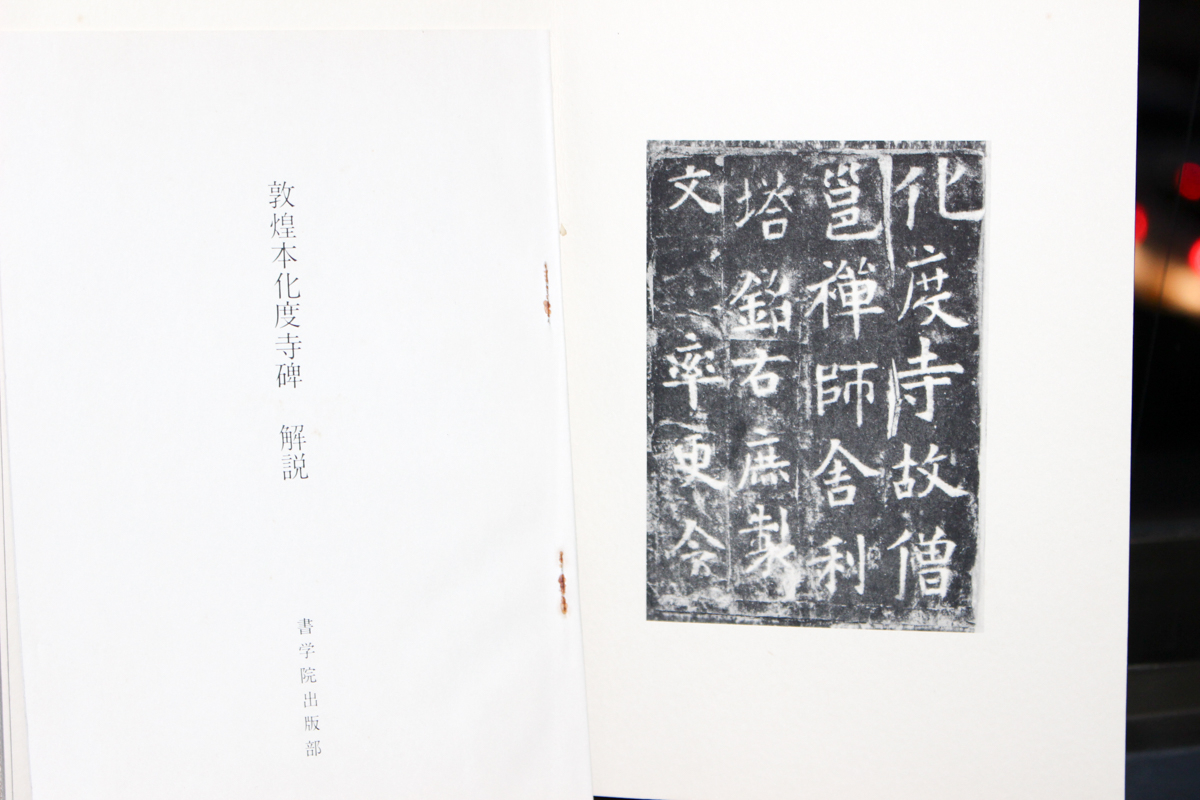 敦煌本化度寺碑　解説
書学院出版部
化度寺故僧
邕禪師舍利
塔銘右庶製
文　率更令